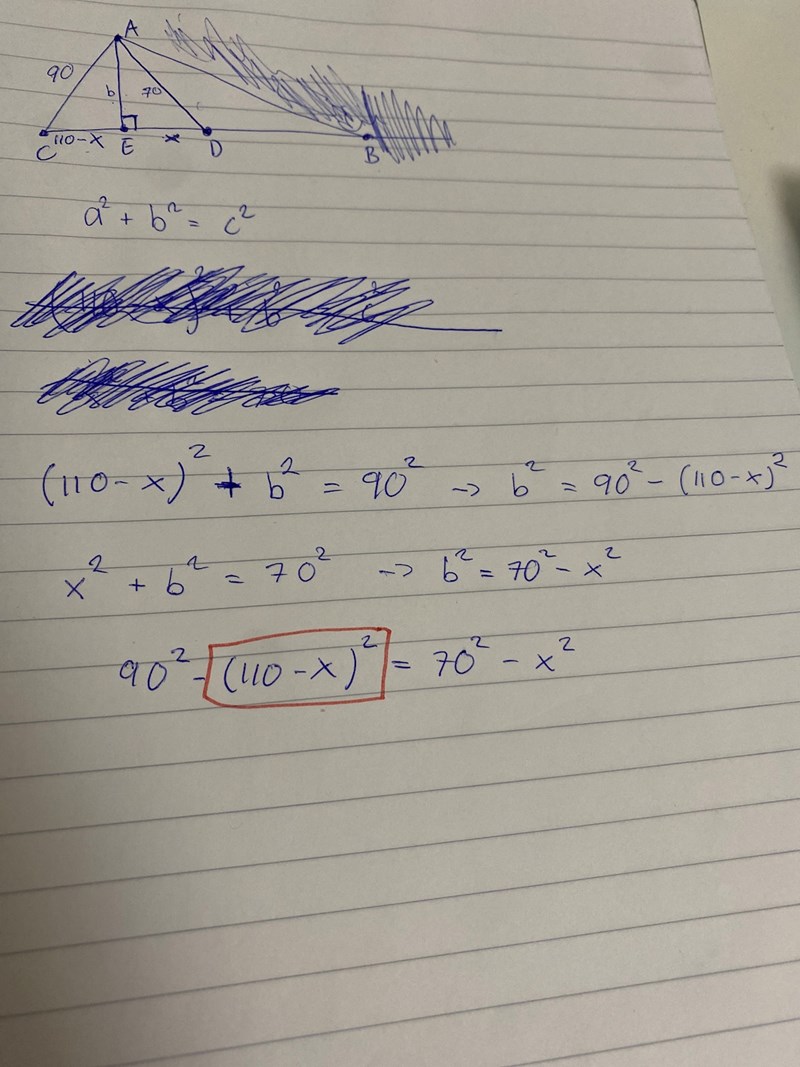 A
90
b
70
C
110-x
E
x
D
B
a² + b² = c²
(110-x)² + b² = 90² → b² = 90² - (110-x)²
x² + b² = 70² → b² = 70² - x²
90² - (110-x)² = 70² - x²